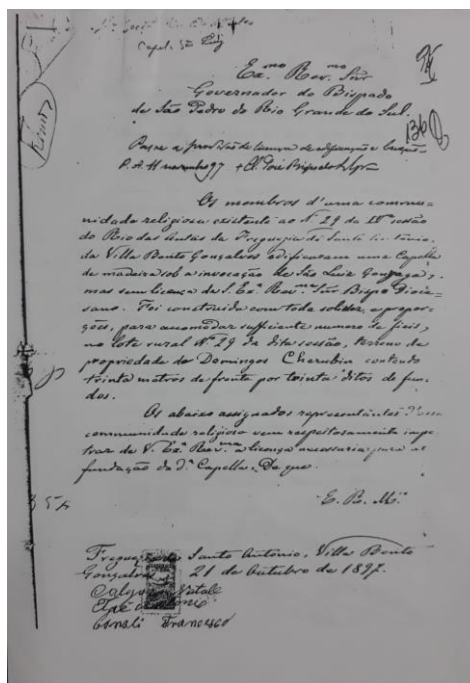 Capel. São Luiz
Ex.mo Rev.mo Snr
Governador do Bispado
de São Pedro do Rio Grande do Sul.
136
Passe a provisão de licença de edificação e
P. A. 11 novembro 97 + José Bispo
Os membros d'uma commu-
nidade religiosa existente ao Nº 29 da IVª sessão
do Rio das Antas da Freguezia de Santo Antônio,
da Villa Bento Gonçalves edificaram uma Capella
de madeira sob a invocação de São Luiz Gonzaga,
mas sem licença de S. Exª Rev.ma Snr Bispo Dioce-
sano. Foi construida com toda solidez, e propor-
ções, para accomodar sufficiente numero de fieis,
no lote rural Nº 29 da dita sessão, terreno de
propriedade de Domingos Cherubin contendo
trinta metros de frente por trinta ditos de fun-
dos.
Os abaixo assignados representantes
communidade religiosa vem respeitosamente impe-
trar de V. Exª Rev.ma a licença necessaria para a
fundação da dª Capella. De que
E. R. M.ce
Freguezia de Santo Antônio, Villa Bento
Gonçalves 21 de Outubro de 1897.
Natale
Canali Francesco